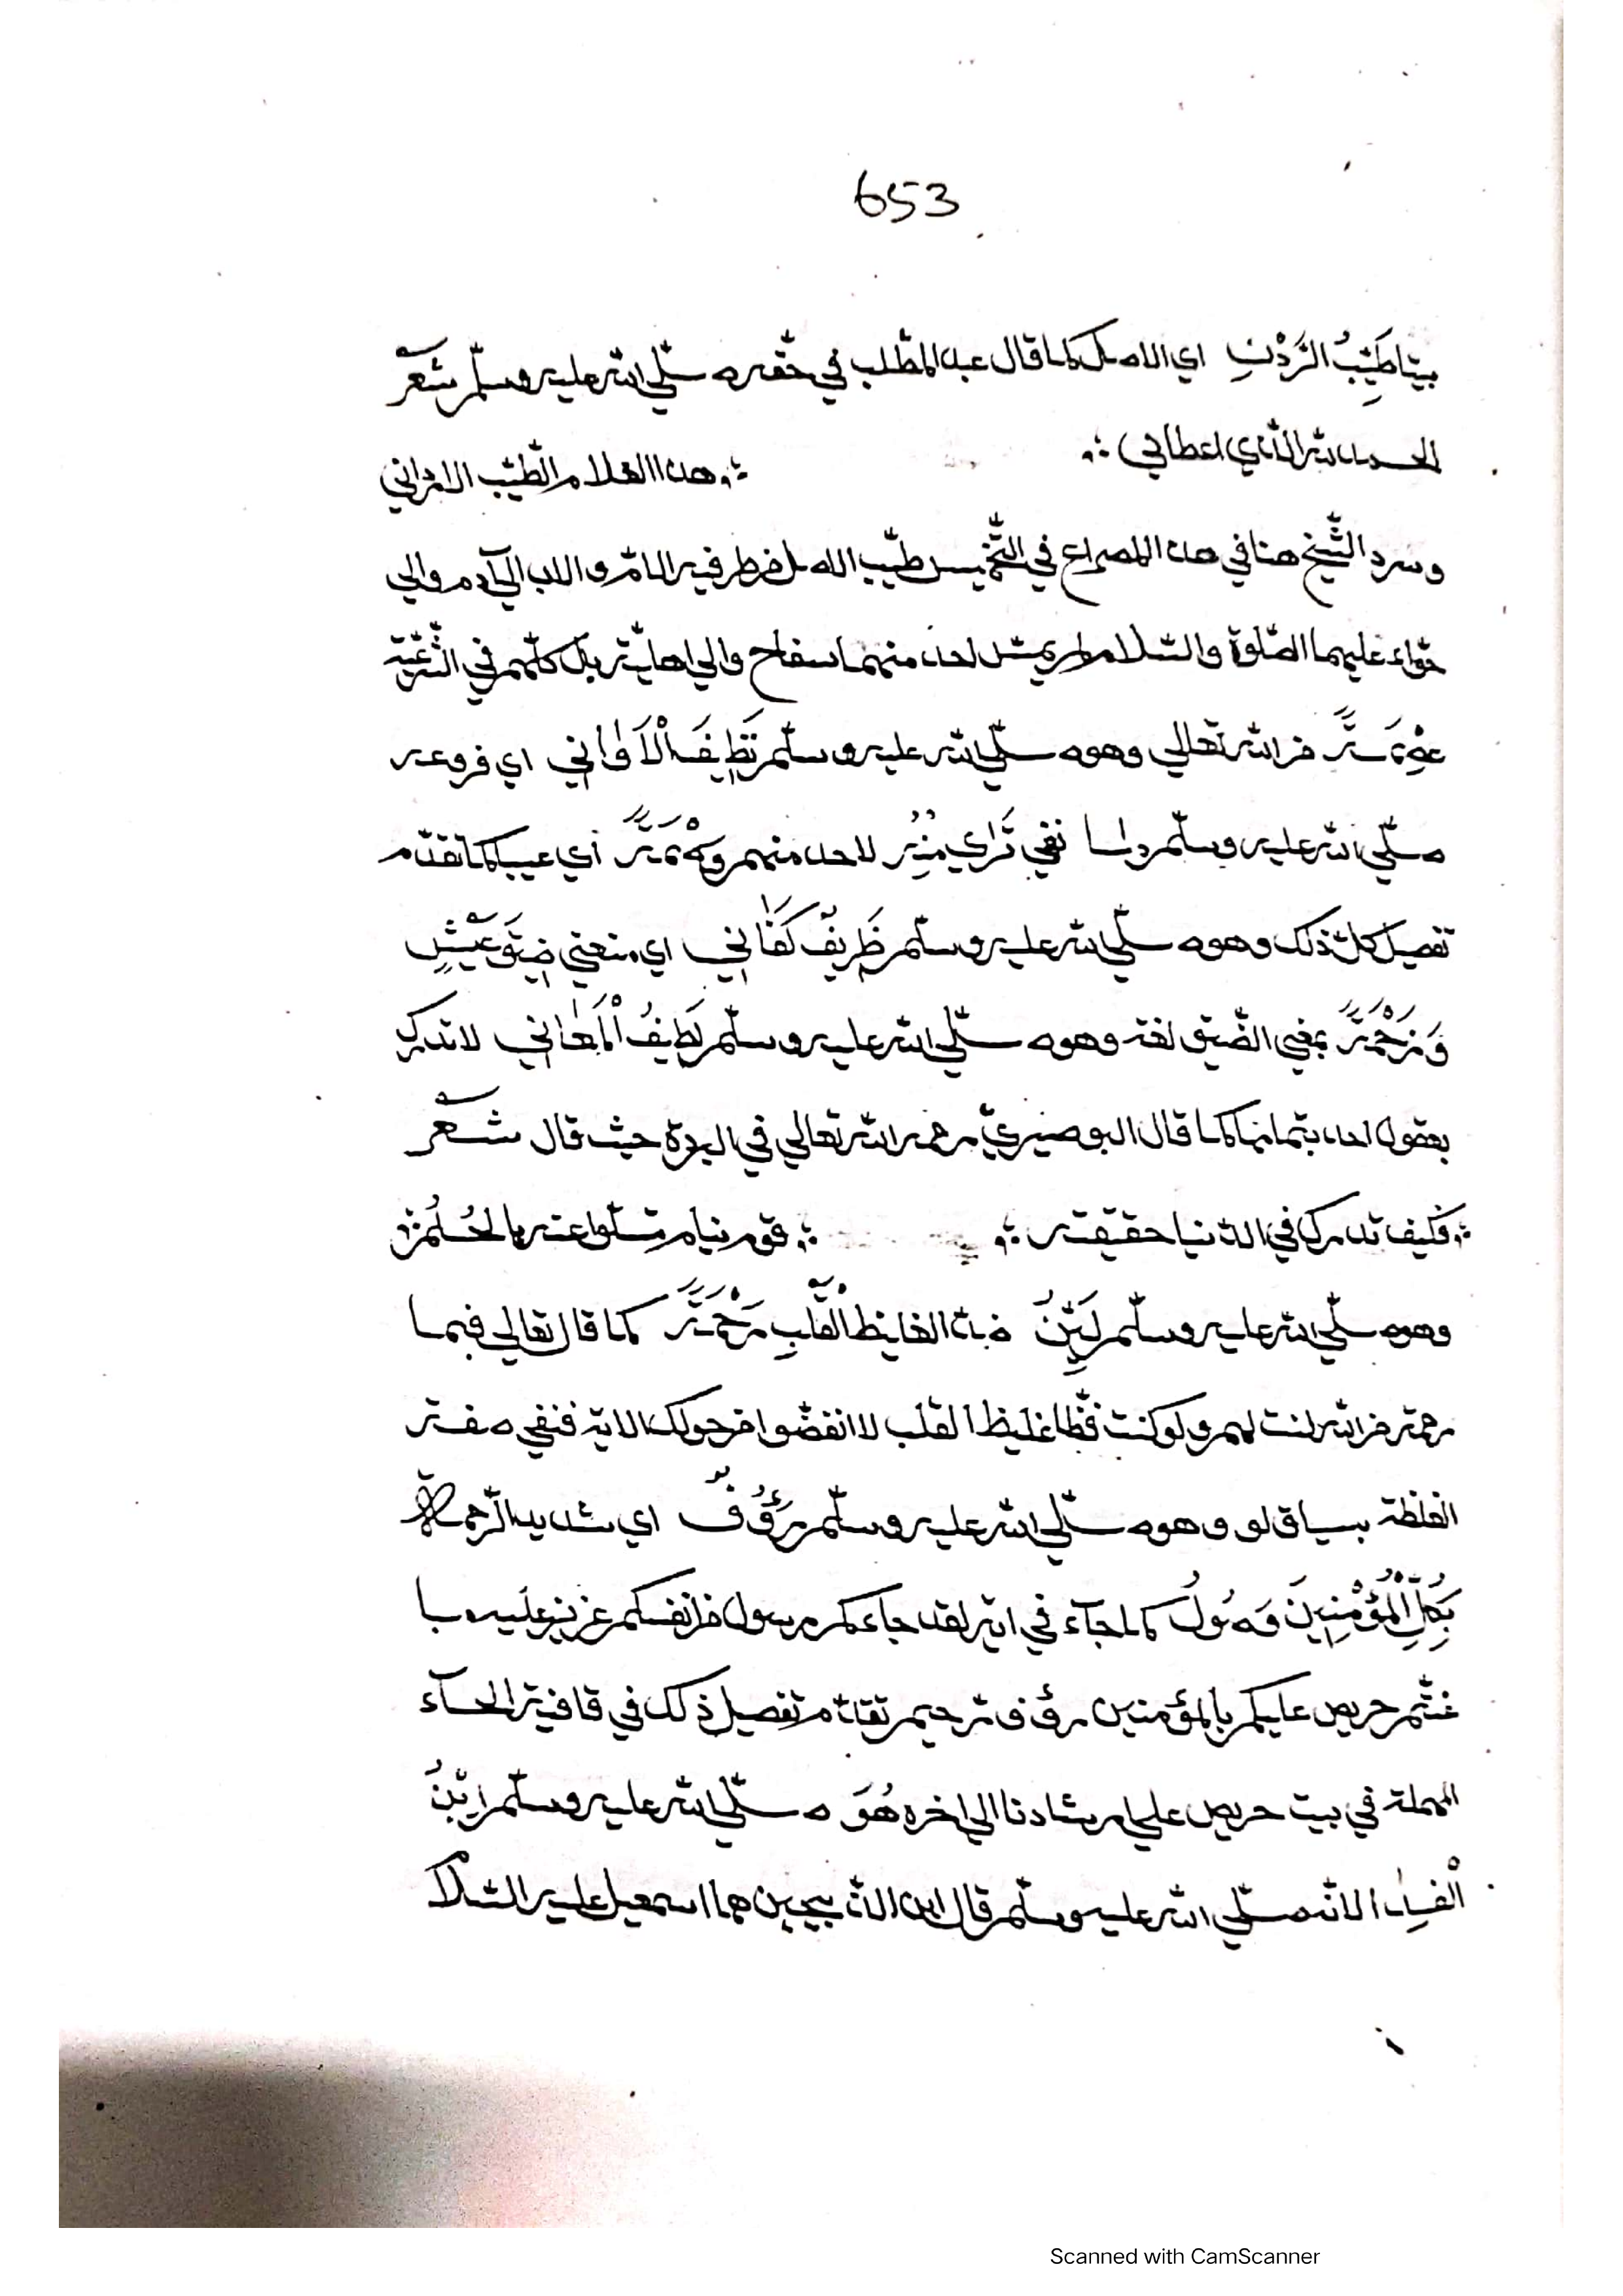 653
بيتا طَيِّبُ الرُّدْنِ اي الاصل كما قال عبد المطّلب في حقّه صلّي الله عليه وسلّم شعر
الحمد لله الّذي اعطاني ؞
؞ هذا الغلام الطّيّب الاردانِ
وسرد الشّيخ هنا في هذا المصراع في التّخميس طيّب الاصل فطرفيه الامّ والاب الي آدم والي
حوّاء عليهما الصّلوة والسّلام لم يمسّ احد منهما سفاح والي اهليّة بل كلّهم في الشّرعيّة
من الله تعالي وهو صلّي الله عليه وسلّم نَظِيفُ الْاَوَانِي اي فروعه
صلّي الله عليه وسلّم نفي لاحد منهم أي عيب كما تقدّم
تفصيل كلّ ذلك وهو صلّي الله عليه وسلّم ظَرِيفٌ كَفَانِي اي منعني ضِيقَ عَيْشٍ
وَزَحْمَةً بمعني الضّيق لغة وهو صلّي الله عليه وسلّم لَطِيفُ الْمَعَانِي لا تدرك
بعقول احد بتمامها كما قال البوصيريّ رحمه الله تعالي في البردة حيث قال شعر
؞ فكيف تدرك في الدّنيا حقيقته ؞ ؞ قوم نيام تسلّوا عنه بالحُلُم
وهو صلّي الله عليه وسلّم لَيِّنٌ الغليظ الْقَلْبِ رَحْمَةً كما قال تعالي فبما
رحمة من الله لنت لهم ولو كنت فظّا غليظ القلب لاانفضّوا من حولك الاية فنفي صفة
الغلظة بسياق لو وهو صلّي الله عليه وسلّم رَؤُوفٌ اي شديد الرّحمة
بِكُلِّ الْمُؤْمِنِينَ وَصُولُ كما جآء في اية لقد جاءكم رسول من انفسكم عزيز عليه ما
عنتّم حريص عليكم بالمؤمنين رؤف رحيم تقدّم تفصيل ذلك في قافية الحآء
المهملة في بيت حريص علي ارشادنا الي اخره هُوَ صلّي الله عليه وسلّم ابْنُ
الْفِدَا لانّه صلّي الله عليه وسلّم قال ابن الذّبيحين هما اسمعيل عليه السّلا
Scanned with CamScanner